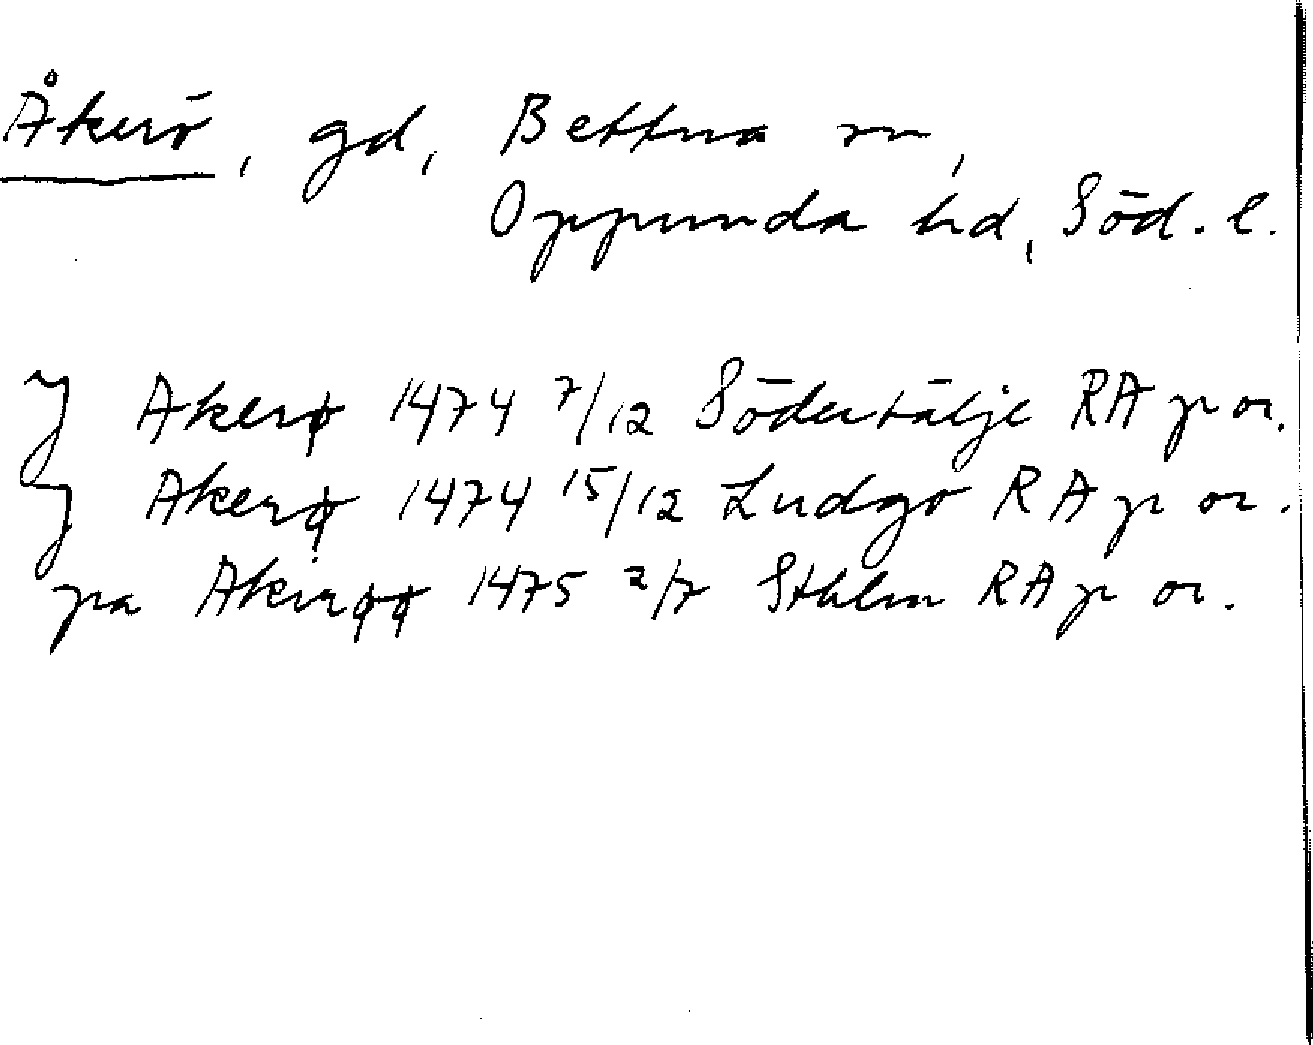 Åkerö, gd, Bettna sn,
Oppunda hd, Söd. l.
J Akerø 1474 7/12 Södertälje RA p or.
J Akerø 1474 15/12 Ludgo RA p or.
pa Akerøø 1475 2/7 Sthlm RA p or.